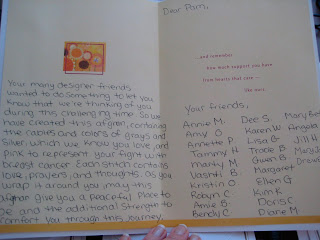 Your many designer friends
wanted to do something to let you
know that we're thinking of you
during this challenging time. So we
have created this afgan, containing
the cables and colors of grays and
silver, which we know you love, and
pink to represent your fight with
breast cancer. Each stitch contains
love, prayers, and thoughts. As you
wrap it around you, may this
afghan give you a peaceful place to
be and the additional strength to
comfort you through this journey.
Dear Pam,
...and remember
how much support you have
from hearts that care —
like ours.
Your friends,
Annie M. Dee S. Mary Beth
Amy O. Karen W.
Annette P. Lisa G. Jill H.
Tammy H. Trace B. Mary J.
Mairi M. Gwen B.
Vashti B. Margaret
Kristin O. Ellen G.
Robyn C. Kim K.
Amie S. Doris C
Bendy C. Diane M.